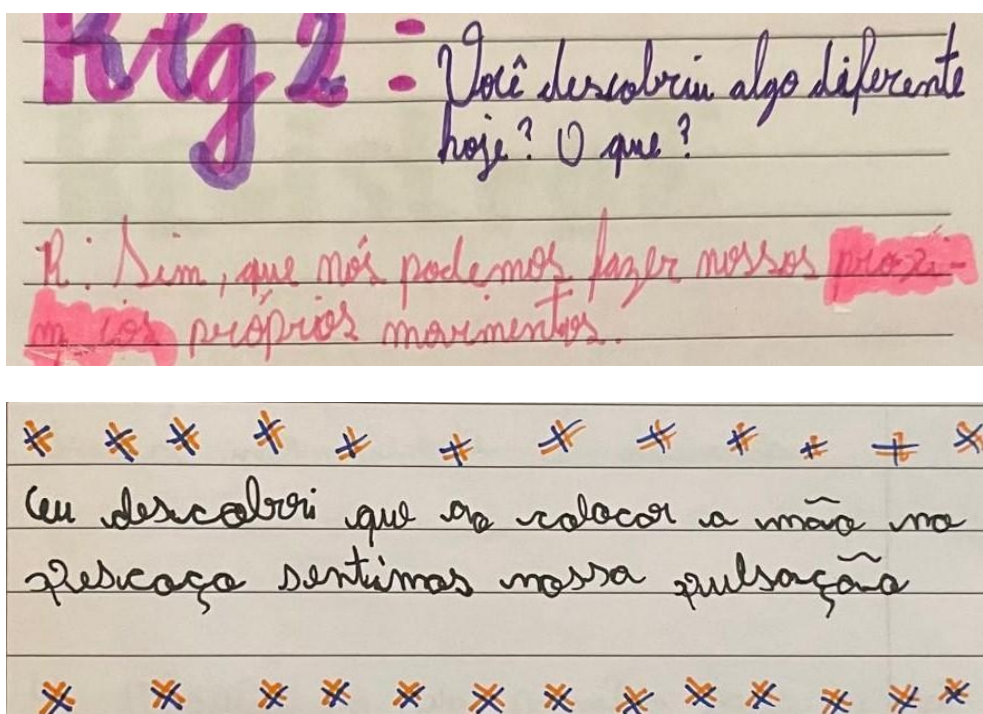 Prg 2: Você descobriu algo diferente
hoje? O que?
R: Sim, que nós podemos fazer nossos proxi-
m os próprios movimentos.
Eu descobri que ao colocar a mão no
pescoço sentimos nossa pulsação